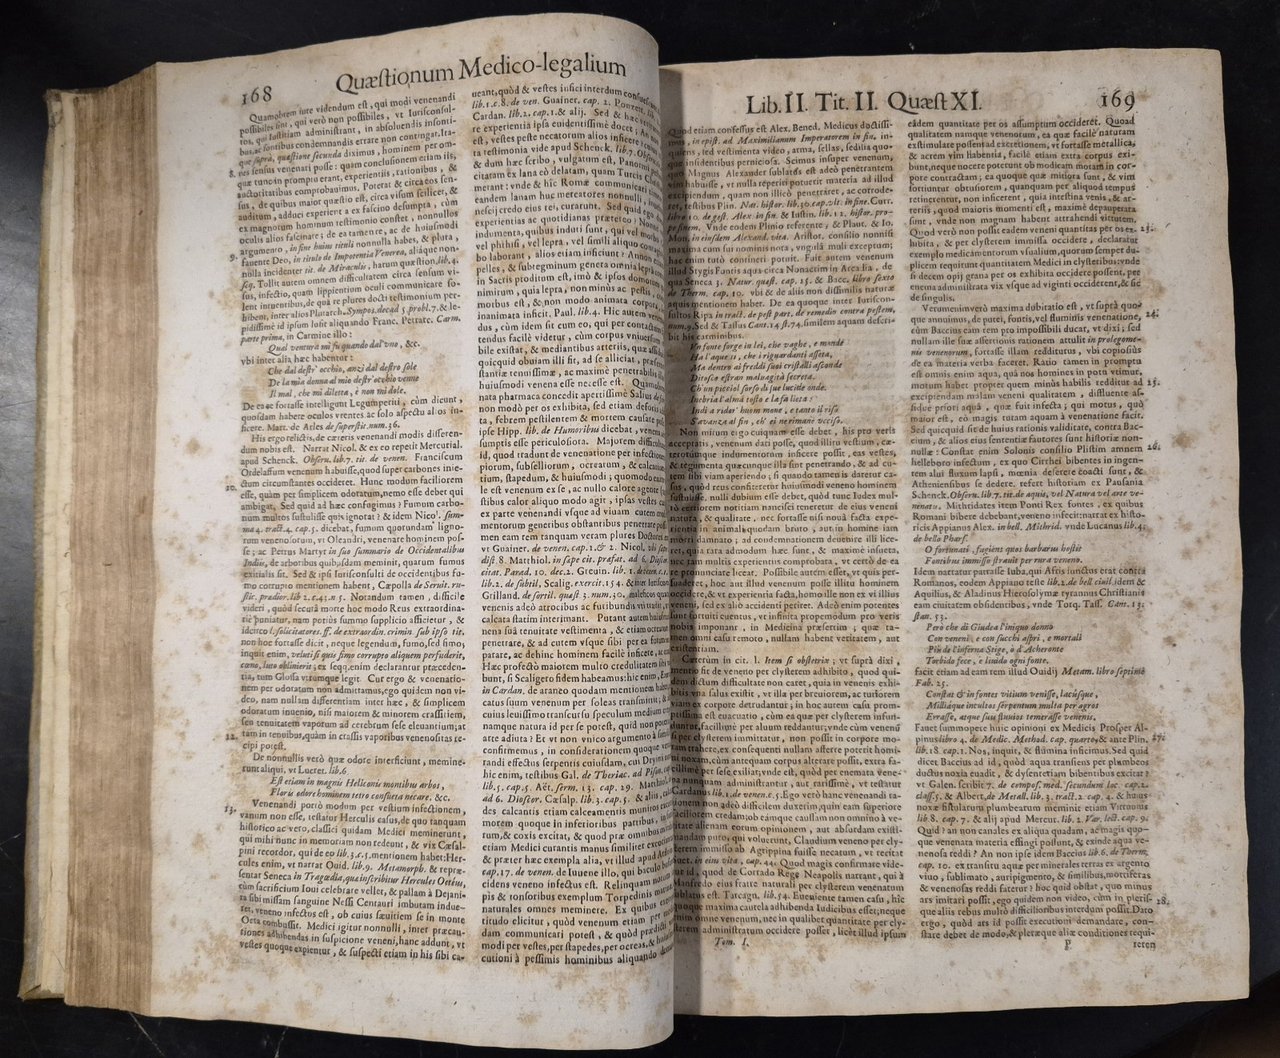 168
Quæstionum Medico-legalium
Quamobrem iure videndum est, qui modi venenandi
possibiles sint, qui verò non possibiles, vt Iurisconsul-
tos, qui Iustitiam administrant, in absoluendis insonti-
bus, ac sontibus condemnandis errare non contingat. Ita-
que suprà, quæstione secunda diximus, hominem per om-
nes sensus venenari posse: quam conclusionem etiam iis,
8. quæ tunc in promptu erant, experientiis, rationibus, &
auctoritatibus comprobauimus. Poterat & circa eos sen-
sus, de quibus maior quæstio est, circa visum scilicet, &
auditum, adduci experientia ex fascino desumpta, cùm
ex magnorum hominum testimonio constet, nonnullos
oculis alios fascinare; de ea tamen, ac de huiusmodi
argumento, in fine huius tituli nonnulla habes, & plura,
9. fauente Deo, in titulo de Impotentia Venerea, aliáque non-
nulla incidenter tit. de Miraculis, harum quæstion. lib. 4.
seq. Tollit autem omnem difficultatem circa sensum vi-
sus, infectio, quam lippientium oculi communicare so-
lent intuentibus, de qua re plures docti testimonium per-
hibent, inter alios Plutarch. Sympos. decad. 5. probl. 7. & le-
pidissimè id ipsum lusit aliquando Franc. Petrarc. Carm.
parte prima, in Carmine illo:
Qual ventura mi fu quando dal'vno, &c.
vbi inter alia hæc habentur:
Che dal destr' occhio, anzi dal destro sole
De la mia donna al mio destr' occhio venne
Il mal, che mi diletta, è non mi dole.
De ea ac fortasse intelligunt Legumperiti, cùm dicunt,
quosdam habere oculos vrentes ac solo aspectu alios in-
ficere. Mart. de Arles de superstit. num. 36.
His ergo relictis, de cæteris venenandi modis disseren-
dum nobis est. Narrat Nicol. & ex eo repetit Mercurial.
apud Schenck. Obseru. lib. 7. tit. de venen. Franciscum
Ordelaffum venenum habuisse, quod super carbones inie-
ctum circumstantes occideret. Hunc modum faciliorem
10. esse, quàm per simplicem odoratum, nemo esse debet qui
ambigat. Sed quid ad hæc confugimus? Fumum carbo-
num multos sustulisse quis ignorat? & idem Nicol. sum-
ma 4. tract. 4. cap. 5. dicebat, fumum quorundam ligno-
rum venenosorum, vt Oleandri, venenare hominem pos-
se; ac Petrus Martyr in suo summario de Occidentalibus
Indiis, de arboribus quibusdam meminit, quarum fumus
exitialis est. Sed & ipsi Iurisconsulti de occidentibus fu-
mo corrupto mentionem habent, Cæpolla de Seruit. ru-
stic. prædior. lib. 2. c. 43. n. 5. Notandum tamen, difficile
videri, quòd secuta morte hoc modo Reus extraordina-
riè puniatur, nam potius summo supplicio afficietur, &
idcirco l. solicitatores. ff. de extraordin. crimin. sub ipso tit.
non hoc fortasse dicit, neque legendum, fumo, sed fimo;
inquit enim, veluti si quis fimo corrupto aliquem perfuderit,
cœno, luto oblinierit; ex seqq. enim declarantur præceden-
tia, tum Glossa vtrumque legit. Cur ergo & venenatio-
nem per odoratum non admittamus, ego quidem non vi-
deo, nam nullam differentiam inter hæc, & simplicem
odoratum inuenio, nisi maiorem & minorem crassitiem,
seu tenuitatem vaporum ad cerebrum sese eleuantium; at
12. tam in tenuibus, quàm in crassis vaporibus venenositas re-
cipi potest.
De nonnullis verò quæ odore interficiunt, memine-
runt aliqui, vt Lucret. lib. 6
Est etiam in magnis Heliconis montibus arbos,
Floris odore hominem tetro consueta necare. &c.
13. Venenandi porrò modum per vestium infectionem,
vanum non esse, testatur Herculis casus, de quo tanquam
historico ac vero, classici quidam Medici meminerunt,
qui mihi nunc in memoriam non redeunt, & vix Cæsal-
pini recordor, qui de eo lib. 3. c. 5. mentionem habet: Her-
cules enim, vt narrat Ouid. lib. 9. Metamorph. & repræ-
sentat Seneca in Tragœdia, qua inscribitur Hercules Oetæus,
cùm sacrificium Ioui celebrare vellet, & pallam à Dejani-
ra sibi missam sanguine Nessi Centauri imbutam indue-
ret, veneno infectus est, ob cuius sæuitiem se in monte
Oeta combussit. Medici igitur nonnulli, inter præcau-
tiones adhibendas in suspicione veneni, hanc addunt, vt
vestes quoque expientur, & suspecti etiam in his sibi ca-
ueant, quòd & vestes iusici interdum consueuerint
lib. 1. c. 8. de ven. Guainer. cap. 2. Ponzett.
Cardan. lib. 2. cap. 1. & alij. Sed & hæc
re experientia ipsa euidentissimè docet;
est, vestes peste necatorum alios inficere
ra testimonia vide apud Schenck. lib. 7. Obseru.
& dum hæc scribo, vulgatum est, Panormi
citatam ex lana eò delatam, quam Turcis
merant: vnde & hîc Romæ communicati
eandem lanam huc meratores nonnulli,
nescij credo eius rei, curarunt. Sed quid ego
experientias ac quotidianas prætereo? Nonne
indumenta, quibus induti sunt, qui vel morbo
vel phthisi, vel lepra, vel simili aliquo contagioso
bo laborant, alios etiam inficiunt? Annon
pelles, & subtegminum genera omnia leprâ
in Sacris proditum est, imò & ipsos domorum
nimirum, quia lepra, non minùs ac pestis,
morbus est, & non modo animata corpora,
inanimata inficit. Paul. lib. 4. Hic autem venenan-
dus, cùm idem sit cum eo, qui per contactum
tendus facilè videtur, cùm corpus vniuersum
bile existat, & mediantibus arteriis, quæ assiduè
quicquid obuiam illi fit, ad se alliciat, præsertim
stantiæ tenuissimæ, ac maximè penetrabilis,
huiusmodi venena esse necesse est. Quamobrem
nata pharmaca concedit apertissimè Salius de
non modò per os exhibita, sed etiam deforis
ta, febrem pestilentem & mortem causare posse.
ipse Hipp. lib. de Humoribus dicebat, venena
sumptis esse periculosiora. Majorem difficultatem
id, quod tradunt de venenatione per infectionem
piorum, subselliorum, ocrearum, & calceamen-
tium, stapedum, & huiusmodi; quomodo enim
le est venenum ex se, ac nullo calore agente,
stibus calor aliquo modo agit, ipsas vestes
ex parte venenandi vsque ad viuam cutem
mentorum generibus obstantibus penetrare
men eam rem tanquam veram plures Doctores
vt Guainer. de venen. cap. 1. & 2. Nicol. vbi supra
dist 8. Matthiol. in sæpe cit. præfat. ad 6. Dioscor.
citat. Parad. 10. dec. 2. Greuin. lib. 1. de ven. c. 2.
lib. 2. de subtil. Scalig. exercit. 154. & inter Iurisconsultos
Grilland. de sortil. quæst 3. num. 30. maleficos quosdam
venenis adeò atrocibus ac futibundis vti
calceta statim interimant. Putant autem huiusmodi
nena suâ tenuitate vestimenta, & etiam ocreas
penetrare, & ad cutem vsque sibi per ea
parare, ac dehinc hominem facilè inficere, ac
Hæc profectò maiorem multo credulitatem habe-
bunt, si Scaligero fidem habeamus: hic enim, Exercit.
in Cardan. de araneo quodam mentionem habet,
catus suum venenum per soleas transmittit; &
cuius leuissimo transcursu speculum medium
namque natura id per se potest, quid non poterit
arte adiuta? Et vt non vnico argumento à simili
confirmemus, in considerationem quoque
randi effectus serpentis cuiusdam, cui Dryini
hîc enim, testibus Gal. de Theriac. ad Pison. cap.
lib. 5. cap. 5. Aët. serm. 13. cap. 29. Matthiol.
ad 6. Dioscor. Cæsalp. lib. 3. cap. 5. & aliis,
des calcantis etiam calceamentis munitos
morem quoque in inferioribus partibus, in
tum, & coxis excitat, & quod præ omnibus mirum
etiam Medici curantis manus similiter excoriat,
& præter hæc exempla alia, vt illud apud Ardoin.
cap. 17. de venen. de Iuuene illo, qui baculo
cidens veneno infectus est. Relinquam notissimum
pis & tonsoribus exemplum Torpedinis
naturales omnes meminere. Ex quibus
titudo elicitur, quòd venenum etiam per
dam communicari potest, & quòd prædicti
modi per vestes, per stapedes, per ocreas, &
cutioni à pessimis hominibus aliquando
Lib. II. Tit. II. Quæst XI.
169
Quod etiam confessus est Alex. Bened. Medicus doctissi-
mus, in epist. ad Maximilianum Imperatorem in fin. in-
quiens, sed vestimenta video, arma, sellas, sedilia quo-
que insidentibus perniciosa. Scimus insuper venenum,
quo Magnus Alexander sublatus est adeò penetrantem
vim habuisse, vt nulla reperiri potuerit materia ad illud
recipiendum, quam non illicò penetraret, ac corrode-
ret, testibus Plin. Nat. histor. lib. 30. cap. vlt. in fine. Curt.
libro 10. de gest. Alex. in fin. & Iustin. lib. 12. histor. pro-
pe finem. Vnde eodem Plinio referente, & Plaut. & Io.
Mon. in eiusdem Alexand. vita. Aristot. consilio nonnisi
maxima cum sui nominis nota, vngulâ muli exceptum;
hac enim tutò contineri potuit. Fuit autem venenum
illud Stygis Fontis aqua circa Nonacrim in Arcadia, de
qua Seneca 3. Natur. quæst. cap. 25. & Bacc. libro sexto
de Therm. cap. 10. vbi & de aliis non dissimilis naturæ
aquis mentionem habet. De ea quoque inter Iuriscon-
sultos Ripa in tract. de pest part. de remedio contra pestem,
num. 9. Sed & Tassus Cant. 14. st. 74. similem aquam descri-
bit his carminibus.
Vn fonte sorge in lei, che vaghe, e monde
Hà l'aque sì, che i riguardanti asseta,
Ma dentro ai freddi suoi cristalli asconde
Ditosco estran maluagità secreta.
Ch'vn picciol sorso di sue lucide onde
Inebria l'alma tosto e la fà lieta:
Indi à rider' huom moue, e tanto il riso
S'avanza al fin, ch' ei ne rimane vcciso.
Non mirum ergo cuiquam esse debet, his pro veris
acceptatis, venenum dari posse, quod illitro vestium, cæ-
terorumque indumentorum inficere possit, eas vestes,
& tegimenta quæcunque illa sint penetrando, & ad cu-
tem diffusum occidere, si quando tamen is daretur ca-
sus, quòd reus confiteretur huiusmodi veneno hominem
sustulisse, nulli dubium esse debet, quòd tunc Iudex mul-
to maiorem notitiam nancisci teneretur de eius veneni
natura, & qualitate, nec fortasse nisi nouâ facta experi-
entia in animali quodam bruto, aut in homine iam
morti damnato; ad condemnationem deuenire illi lice-
ret, quia rara admodum hæc sunt, & maximè insueta,
nec tam multis experientiis comprobata, vt certò de ea
re pronunciare liceat. Possibile autem esset, vt quis per-
horreret, hoc aut illud venenum posse illud hominem
occidere, & vt experientia facta, homo ille non ex vi illius
veneni, sed ex alio accidenti periret. Adeò enim potentes
sunt fortuiti euentus, vt infinita propemodum pro veris
nobis imponant, in Medicina præsertim; quæ ta-
men omni casu remoto, nullam habent veritatem, aut
existentiam.
Cæterùm in cit. l. Item si obstetrix; vt suprà dixi,
mentio fit de veneno per clysterem adhibito, quod qui-
dem dictum difficultate non caret, quia in venenis exhi-
bitis vna salus existit, vt illa per breuiorem, ac tutiorem
viam ex corpore detrudantur; in hoc autem casu prom-
ptissima est euacuatio, cùm ea quæ per clysterem infun-
duntur, facillimè per aluum reddantur; vnde cùm venena
si per clysterem immittitur, non possit in corpore mo-
ram trahere, ex consequenti nullam afferre poterit homi-
ni noxam, cùm antequam corpus alterare possit, extra fa-
cillimè per sese exiliat; vnde est, quòd per enemata vene-
na nunquam administrantur, aut rarissimè, vt testatur
Cardanus lib. 1. de venen. c. 5. Ego verò hanc venenandi ra-
tionem non adeò difficilem duxerim, quin eam superiore
faciliorem credam; ob eamque causam non omnino à ve-
ritate alienam eorum opinionem, aut absurdam existi-
mandam puto, qui voluerunt, Claudium veneno per cly-
sterem immisso ab Agrippina fuisse necatum, vt recitat
Suet. in eius vita, cap. 44. Quod magis confirmate vide-
tur id, quod de Corrado Rege Neapolis narrant, qui à
Manfredo eius fratre naturali per clysterem venenatum
sublatus est. Tarcagn. lib. 54. Eueniente tamen casu, hîc
quoque maxima cautela adhibenda Iudicibus esset; neque
enim omne venenum, nec in qualibet quantitate per cly-
sterem administratum occidere posset, licèt illud ipsum
Tom. I.
eâdem quantitate per os assumptum occideret. Quod
qualitatem namque venenorum, ea quæ facilè naturam
exstimulare possent ad excretionem, vt fortasse metallica,
& acrem vim habentia, facilè etiam extra corpus exi-
bunt, neque nocere poterunt ob modicam moram in cor-
pore contractam; ea quoque quæ mitiora sunt, & vim
fortiuntur obtusiorem, quanquam per aliquod tempus
retineantur, non inficerent, quia intestina venis, & ar-
teriis, quod maioris momenti est, maximè depauperata
sunt, vnde non magnam habent attrahendi virtutem.
23. Quòd verò non possit eadem veneni quantitas per os ex-
hibita, & per clysterem immissa occidere, declaratur
exemplo medicamentorum vsualium, quorum semper du-
plicem requirunt quantitatem Medici in clysteribus; vnde
si decem opij grana per os exhibita occidere possent, per
enema administrata vix vsque ad viginti occiderent, & sic
de singulis.
24. Verumenimverò maxima dubitatio est, vt suprà quo-
que annuimus, de putei, fontis, vel fluminis venenatione,
cùm Baccius eam rem pro impossibili ducat, vt dixi; sed
nullam ille suæ assertionis rationem attulit in prolegome-
nis venenorum, fortasse illam redditurus, vbi copiosiùs
de ea materia verba faceret. Ratio tamen in promptu
est omnis enim aqua, quâ nos homines in potu vtimur,
25. motum habet propter quem minùs habilis redditur ad
excipiendam malam veneni qualitatem, diffluente as-
siduè priori aquâ, quæ fuit infecta; qui motus, quò
maior est, eò magis totam aquam à venenatione facit.
Sed quicquid sit de huius rationis validitate, contra Bac-
26. cium, & alios eius sententiæ fautores sunt historiæ non-
nullæ: Constat enim Solonis consilio Plistim amnem
helleboro infectum, ex quo Cirrhei bibentes in ingen-
tem alui fluxum lapsi, mœnia deserere coacti sunt, &
Atheniensibus se dedere. refert historiam ex Pausania
Schenck. Obseru. lib. 7. tit. de aquis, vel Natura vel arte ve-
nenatis. Mithridates item Ponti Rex fontes, ex quibus
Romani bibere debebant, veneno infecit: narrat ex histo-
ricis Appianus Alex. in bell. Mithrid. vnde Lucanus lib. 4.
de bello Phars.
O fortunati, fugiens quos barbarus hostis
Fontibus immisso strauit per rura veneno.
Idem narratur patrasse Iuba, qui Afris iunctus erat contra
Romanos, eodem Appiano teste lib. 2. de bell. ciuil. idem &
Aquilius, & Aladinus Hierosolymæ tyrannus Christianis
eam ciuitatem obsidentibus, vnde Torq. Tass. Cant. 13.
stan. 53.
Però che di Giudea l'iniquo donno
Con veneni, e con succhi aspri, e mortali
Più de l'inferna Stige, ò d'Acheronte
Torbido fece, e liuido ogni fonte.
facit etiam ad eam rem illud Ouidij Metam. libro septimo
Fab. 25.
Constat & in fontes vitium venisse, lacúsque,
Milliáque incultos serpentum multa per agros
Errasse, atque suis fluuios temerasse venenis.
27. Fauet summopere huic opinioni ex Medicis Prosper Al-
pinus libro 4. de Medic. Method. cap. quarto, & ante Plin.
lib. 18. cap. 1. Nos, inquit, & flumina inficimus. Sed quid
dicet Baccius ad id, quòd aqua transiens per plumbeos
ductus noxia euadit, & dysenteriam bibentibus excitat?
vt Galen. scribit 7. de compos. med. secundùm loc. cap. 2.
class. 5. & Albert. de Metall. lib. 3. tract. 2. cap. 4. & huius
noxæ fistularum plumbearum meminit etiam Vitruuius
lib. 8. cap. 7. & alij apud Mercur. lib. 1. Var. lect. cap. 9.
Quid? an non canales ex aliqua quadam, ac magis quo-
que venenata materia effingi possunt, & exinde aqua ve-
nenosa reddi? An non ipse idem Baccius lib. 6. de Therm.
cap. 10. ex transitu aquæ per minerales terras ex argento
viuo, sublimato, auripigmento, & similibus, mortiferas
28. & venenosas reddi fatetur? hoc quid obstat, quo minus
ars imitari possit, ego quidem non video, cùm in pleris-
que aliis rebus multò difficilioribus interdum possit. Dato
ergo, quòd ars id possit executioni demandare, con-
stare debet de modo, & pleræque aliæ conditiones requi-
P
reren